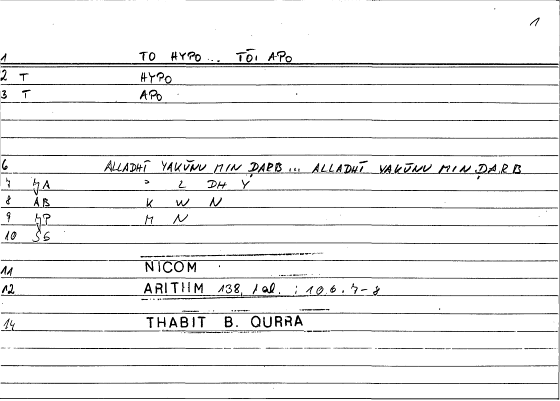 1
1 TO HYPO... TŌI APO
2 T HYPO
3 T APO
6 ALLADHĪ YAKŪNU MIN ḌARB... ALLADHĪ YAKŪNU MIN ḌARB
7 L DH Y
8 AB K W N
9 M N
10
11 NICOM
12 ARITHM 138, : 10.6.7-8
14 THABIT B. QURRA